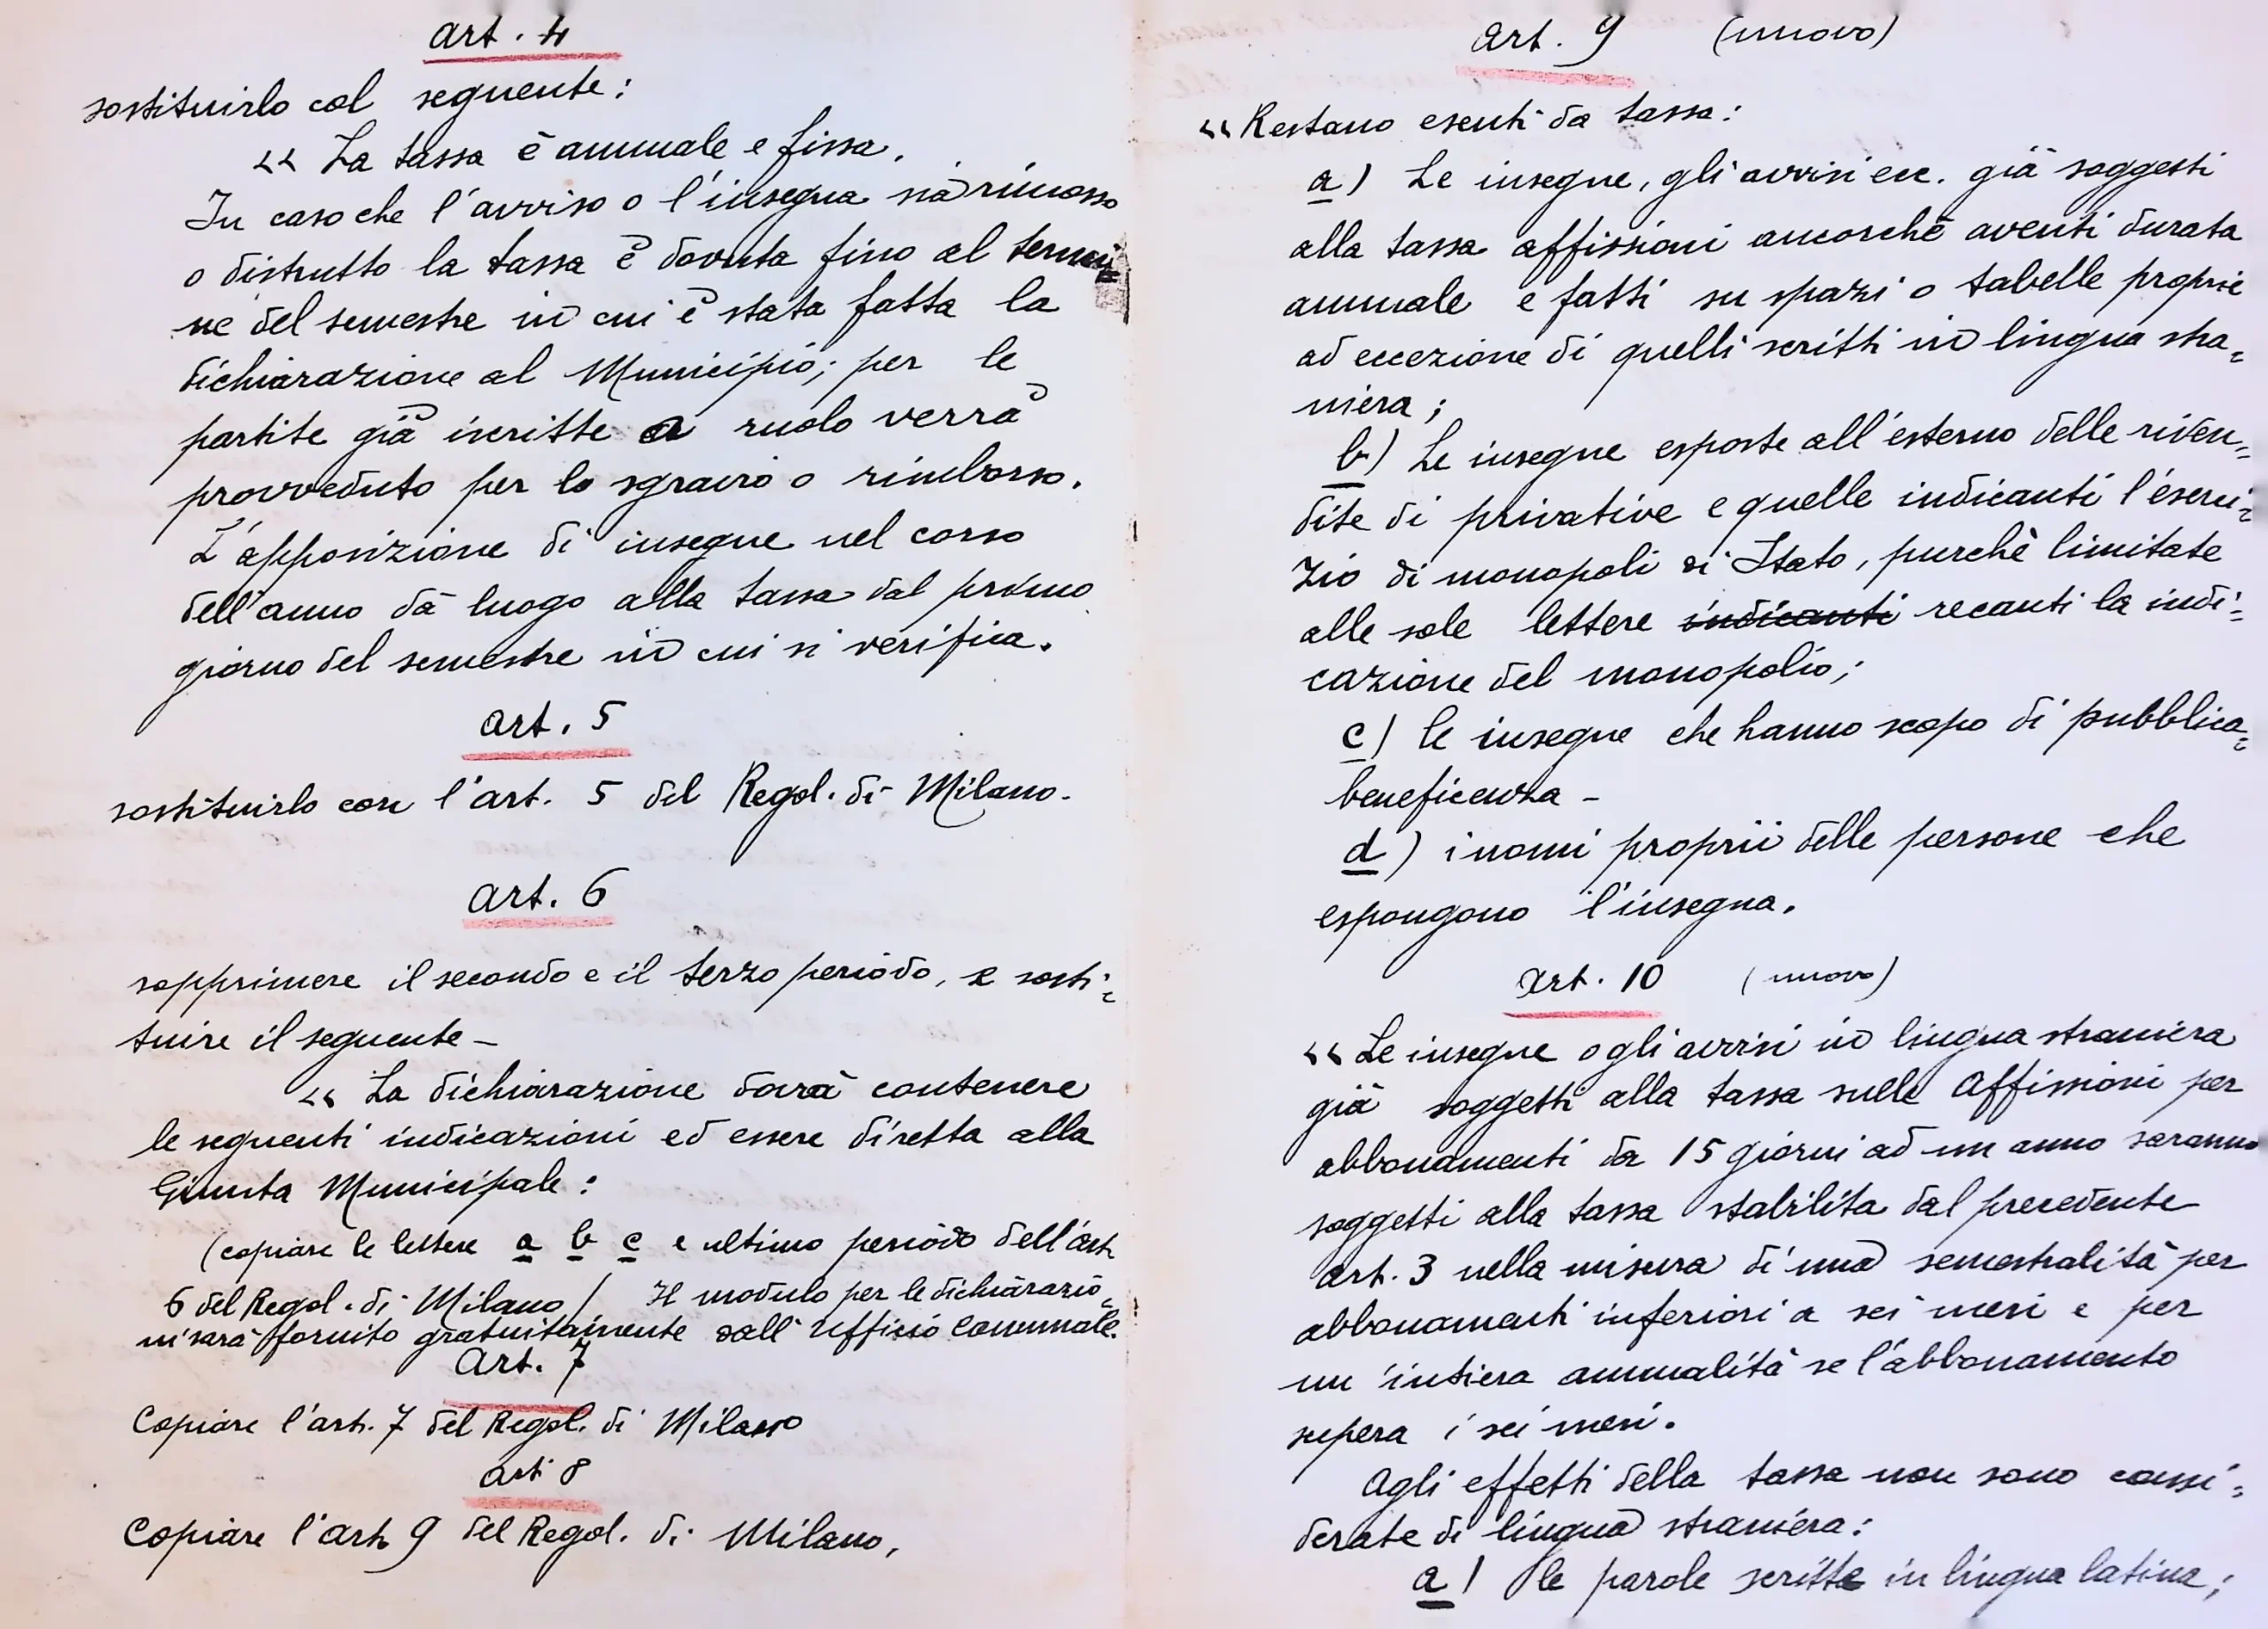 Art. 4
sostituirlo col seguente:
« La tassa è annuale e fissa.
In caso che l'avviso o l'insegna sia rimosso
o distrutto la tassa è dovuta fino al termi=
ne del semestre in cui è stata fatta la
dichiarazione al Municipio; per le
partite già iscritte a ruolo verrà
provveduto per lo sgravio o rimborso.
L'apposizione di insegne nel corso
dell'anno dà luogo alla tassa dal primo
giorno del semestre in cui si verifica.
Art. 5
sostituirlo con l'art. 5 del Regol. di Milano.
Art. 6
sopprimere il secondo e il terzo periodo, e sosti=
tuire il seguente –
« La dichiarazione dovrà contenere
le seguenti indicazioni ed essere diretta alla
Giunta Municipale:
(copiare le lettere a b c e ultimo periodo dell'art
6 del Regol. di Milano) Il modulo per le dichiarazio=
ni sarà fornito gratuitamente dall'ufficio Comunale.
Art. 7
Copiare l'art. 7 del Regol. di Milano
Art 8
Copiare l'art 9 del Regol. di Milano.
Art. 9 (nuovo)
« Restano esenti da tassa:
a) Le insegne, gli avvisi ecc. già soggetti
alla tassa affissioni ancorchè aventi durata
annuale e fatti su spazi o tabelle proprie
ad eccezione di quelli scritti in lingua stra=
niera;
b) Le insegne esposte all'esterno delle riven=
dite di privative e quelle indicanti l'eserci=
zio di monopoli di Stato, purchè limitate
alle sole lettere indicanti recanti la indi=
cazione del monopolio;
c) le insegne che hanno scopo di pubblica=
beneficenza –
d) i nomi proprii delle persone che
espongono l'insegna.
Art. 10 (nuovo)
« Le insegne o gli avvisi in lingua straniera
già soggetti alla tassa sulle Affissioni per
abbonamenti da 15 giorni ad un anno saranno
soggetti alla tassa stabilita dal precedente
art. 3 nella misura di una semestralità per
abbonamenti inferiori a sei mesi e per
un'intiera annualità se l'abbonamento
supera i sei mesi.
Agli effetti della tassa non sono consi=
derate di lingua straniera:
a) le parole scritte in lingua latina;